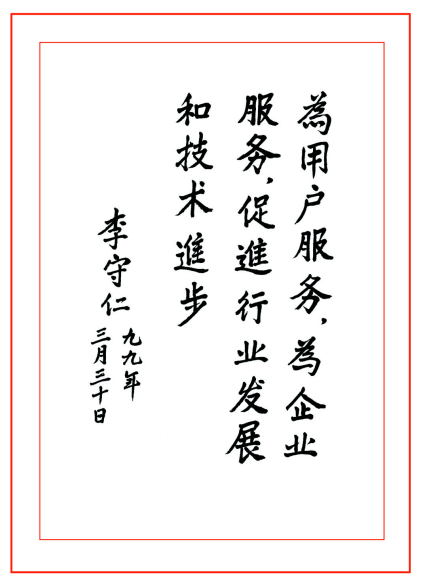 為用户服务，為企业
服务，促進行业发展
和技术進步
李守仁
九九年
三月三十日